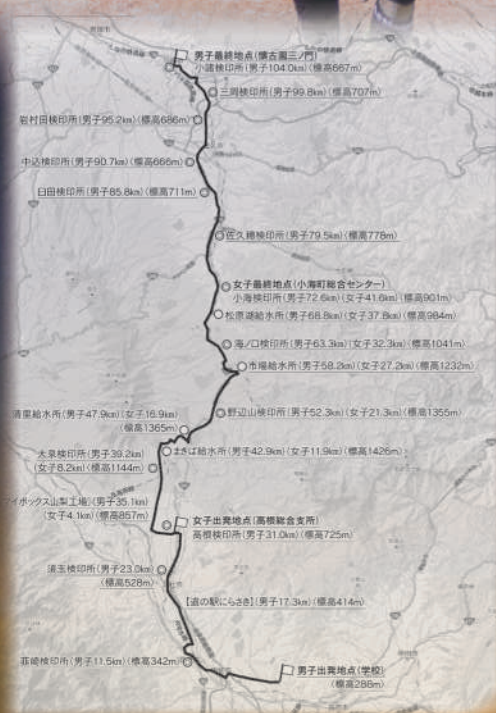 男子最終地点(懐古園三ノ門)
小諸検印所(男子104.0km)(標高667m)
三岡検印所(男子99.8km)(標高707m)
岩村田検印所(男子95.2km)(標高686m)
中込検印所(男子90.7km)(標高666m)
臼田検印所(男子85.8km)(標高711m)
佐久穂検印所(男子79.5km)(標高778m)
女子最終地点(小海町総合センター)
小海検印所(男子72.6km)(女子41.6km)(標高901m)
松原湖給水所(男子68.8km)(女子37.8km)(標高984m)
海ノ口検印所(男子63.3km)(女子32.3km)(標高1041m)
市場給水所(男子58.2km)(女子27.2km)(標高1232m)
野辺山検印所(男子52.3km)(女子21.3km)(標高1355m)
清里給水所(男子47.9km)(女子16.9km)
(標高1365m)
まきば給水所(男子42.9km)(女子11.9km)(標高1426m)
大泉検印所(男子39.2km)
(女子8.2km)(標高1144m)
イボックス山梨工場(男子35.1km)
(女子4.1km)(標高857m)
女子出発地点(高根総合支所)
高根検印所(男子31.0km)(標高725m)
須玉検印所(男子23.0km)
(標高528m)
【道の駅にらさき】(男子17.3km)(標高414m)
韮崎検印所(男子11.5km)(標高342m)
男子出発地点(学校)
(標高288m)